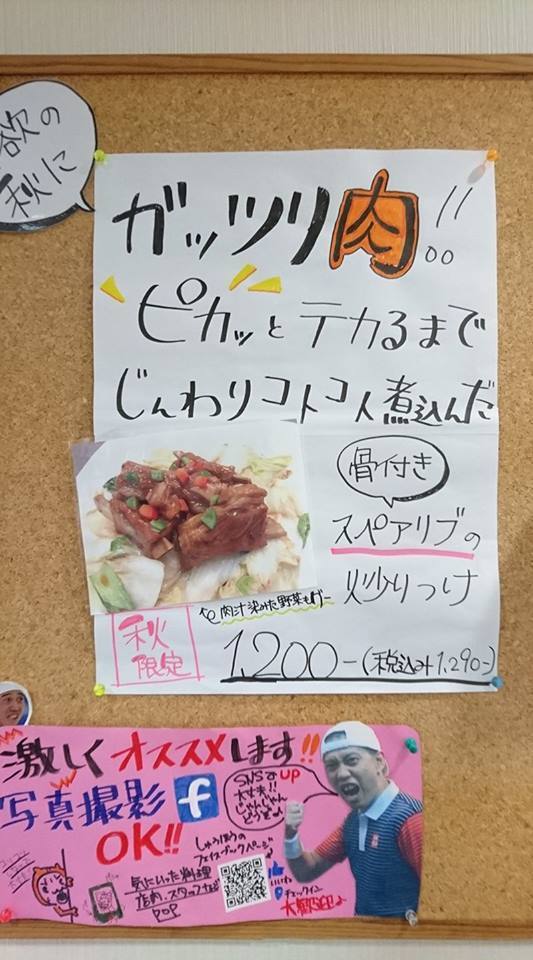 欲の
秋に
ガッツリ肉!!
ピカッとテカるまで
じんわりコトコト煮込んだ
骨付き
スペアリブの
炒りつけ
肉汁染みた野菜も
秋
限定
1,200-(税込み1,290-)
激しくオススメします!!
写真撮影 f
OK!!
SNSでUP
大丈夫!!
じゃんじゃん
どうぞ♪
しゅうほうの
フェイスブックページ
気にいった料理
店内、スタッフなど
POP
いいね
チェックイン
大歓迎♪